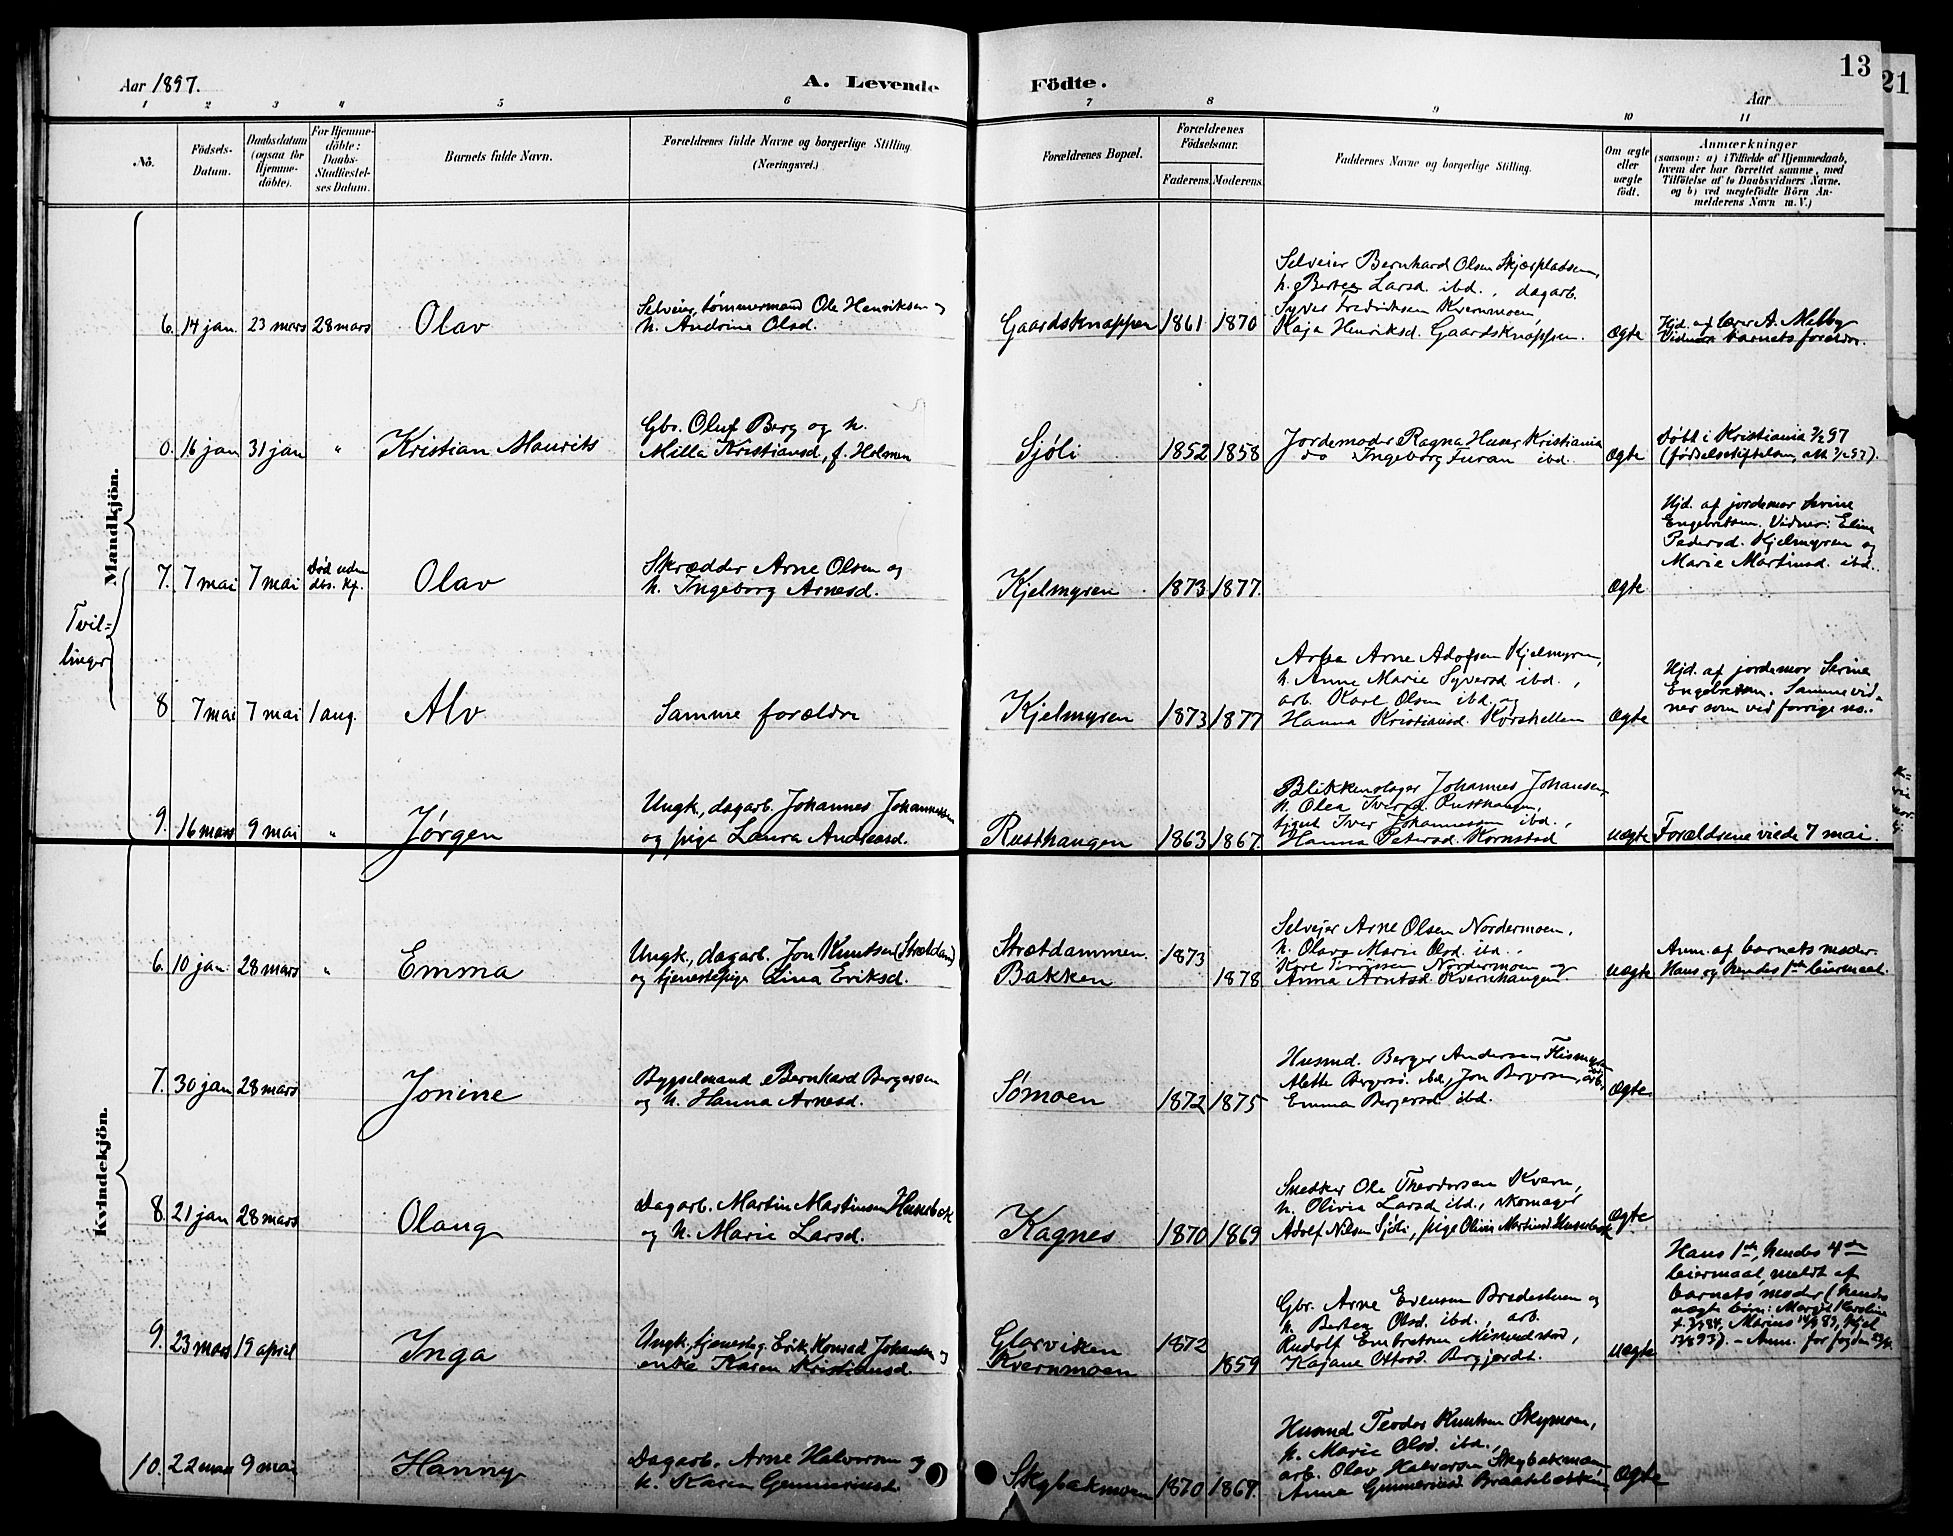 13
21
Aar 1897.
A. Levende Födte.
Aar
1 2 3 4 5 6 7 8 9 10 11
No.
Födsels-
Datum.
Daabsdatum
(ogsaa for
Hjemme-
döbte).
For Hjemme-
döbte:
Daabs-
Stadfæstel-
ses Datum.
Barnets fulde Navn.
Forældrenes fulde Navne og borgerlige Stilling.
(Næringsvei.)
Forældrenes Bopæl.
Forældrenes
Födselsaar.
Faderens. Moderens.
Faddernes Navne og borgerlige Stilling.
Om ægte
eller
uægte
född.
Anmærkninger
(saasom: a) i Tilfælde af Hjemmedaab,
hvem der har forrettet samme, med
Tilföielse af to Daabsvidners Navne.
og b) ved uægtefödte Börn An-
melderens Navn m. V.)
Mandkjön.
6. 14 jan. 23 mars 28 mars Olav
Selveier, tømmermand Ole Henriksen og
h. Andrine Olsd.
Gaardsknappen 1861 1870
Selveier Bernhard Olsen Skjæspladsen,
h. Bertea Larsd. ibd., dagarb.
Syver Fredriksen Kvernmoen,
Kaja Henriksd. Gaardsknappen.
Ægte
Hjd. af lærer A. Melby
Vidner barnets foreldre.
0. 16 jan 31 jan " Kristian Maurits
Gbr. Oluf Berg og h.
Milla Kristiansd, f. Holmen
Sjøli 1852 1858
Jordemoder Ragna Huser, Kristiania
do Ingeborg Furan ibd.
Ægte
Døbt i Kristiania
Tvil-
linger
7. 7 mai 7 mai
Død uden
Olav
Skrædder Arne Olsen og
h. Ingeborg Arnesd.
Kjelmyren 1873 1877.
Ægte
Hjd. af jordemor Serine
Engebretsen. Vidner: Eline
Pedersd. Kjelmyren og
Marie Martinsd. ibd.
8. 7 mai 7 mai 1 aug. Alv
Samme forældre
Kjelmyren 1873 1877
Arne Adofsen Kjelmyren,
h. Anne Marie Syversd ibd.,
arb. Karl Olsen ibd. og
Hanna Kristiansd.
Ægte
Hjd. af jordemor Serine
Engebretsen. Samme vid-
ner som ved forrige no.
9. 16 mars 9 mai " Jørgen
Ungk., dagarb. Johannes Johannessen
og pige Laura Andreasd.
Rusthaugen 1863 1867.
Blikkenslager Johannes Johansen
h. Olea Iversd. Rusthaugen,
Iver Johannessen ibd.,
Hanna Petersd. Kornstad
Uægte
Forældrene viede 7 mai.
Kvindekjön.
6. 10 jan. 28 mars " Emma
Ungk., dagarb. Jon Knutsen (Strætdam)
og tjenestepige Lina Eriksd.
Strætdammen 1873
Bakken 1878
Selveier Arne Olsen Nordermoen,
h. Olava Marie Olsd. ibd.,
Nordermoen og
Anna Arntsd. Kvernhaugen
Uægte
Anm. af barnets moder.
Hans og hendes 1ste leiermaal.
7. 30 jan 28 mars Jonine
Bygselmand Bernhard Bergersen
og h. Hanna Arnesd.
Sømoen 1872 1875
Husmd. Berger Andersen Flismyren
Alette Bergersd. ibd., Jon Bergersen, arb.,
Emma Bergersd. ibd.
Ægte
8. 21 jan 28 mars Olaug
Dagarb. Martin Martinsen Huserbak
og h. Marie Larsd.
Kagnes 1870 1869
Snedker Ole Theodorsen Kvern,
h. Olivia Larsd ibd., skomager
Adolf Nilsen Sjøli, pige Olivia Martinsd Huserbak
Ægte
9. 23 mars 19 april Inga
Ungk., tjenestg. Erik Konrad Johansen og
enke Karen Kristiansd.
Glorviken 1872
Kvernmoen 1859
Gbr. Arne Evensen Bredestuen og
h. Bertea Olsd. ibd., arb.
Rudolf Embretsen
Kajane Ottersd. Berggjerdt.
Uægte
Hans 1ste, hendes 4de
leiermaal, meldt af
barnets moder (hendes
uægte børn: Margit Karoline
10. 22 mars 9 mai Hanny
Dagarb. Arne Halvorsen og
h. Karen Gunneriusd.
Skybakmoen 1870 1867.
Husmd Teodor Knutsen Skymoen,
h. Marie Olsd. ibd.,
arb. Olav Halvorsen Skybakmoen
Anna Gunneriusd Braatebakken
Ægte